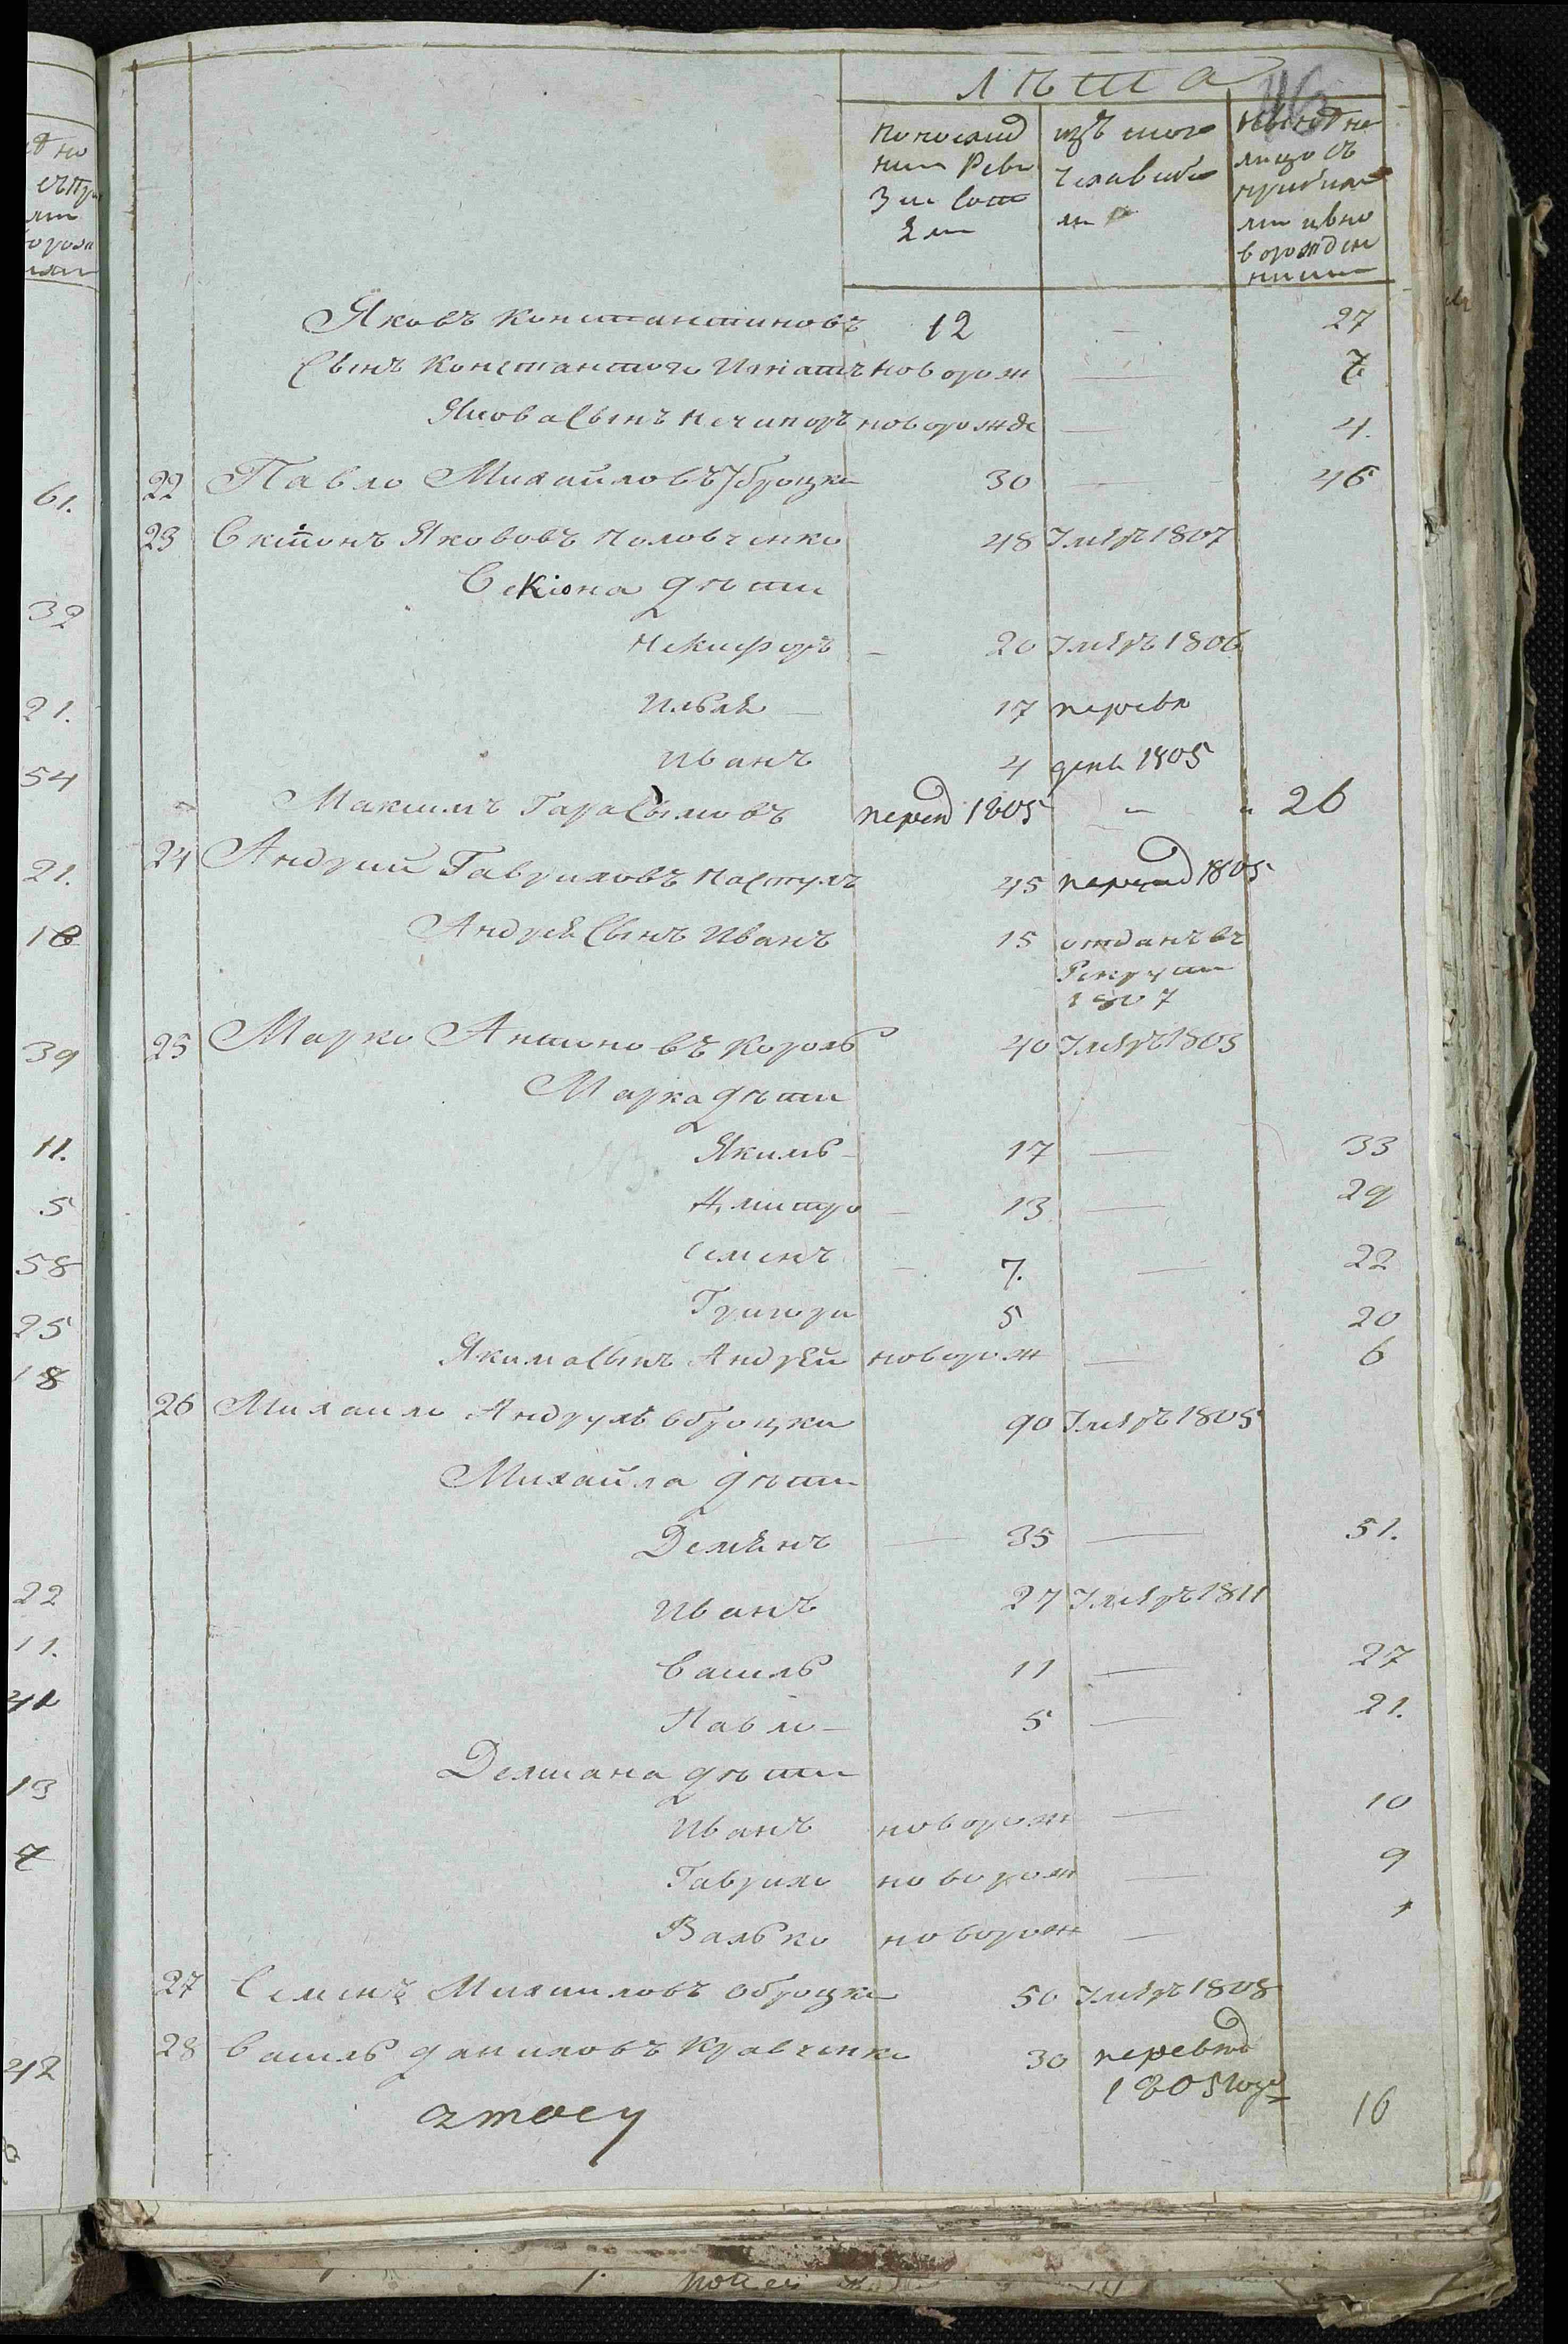 лѣта
по послид
ній Реви
зіи бы
ли
изъ того
числа выбы
ло
Ныне на
лицо съ
прибыл
ми и вно
ворожден
ними
Яковъ Константиновъ 12 — 27
Сынъ Константого Игнатъ новорож — 7
Якова Сынъ Нечипоръ новорожде — 4.
22 Павло Михайловъ Уброцки 30 — 46
23 Якововъ Головченко 48 Умѣръ 1807
дѣти
Никифоръ — 20 Умѣръ 1806
Илья — 17 перевѣ
Иванъ 4 1805
Максимъ Гарасымовъ перевд 1805 — " 26
24 Андрий Гавриловъ Пастухъ 45 переведд 1805
Андрея Сынъ Иванъ 15 отданъ въ
Рекруты
1807
25 Марко Антоновъ Король 40 Умѣръ 1803
Марка дѣти
Якимъ — 17 — 33
Дмитро — 13 — 29
Семенъ — 7. — 22
Григори 5 20
Якима Сынъ Андрей новорож — 6
26 Михаило Андрухъ оброцки 90 Умѣръ 1805
Михайла дѣти
Демянъ — 35 — 51.
Иванъ 27 Умѣръ 1811
Василь 11 — 27
Павло — 5 — 21.
Демиана дѣти
Иванъ новорож — 10
Гаврило новорож — 9
Валько новорож — 1
27 Семенъ Михаиловъ оброцки 50 Умѣръ 1808
28 Василь Даниловъ Кравченко 30 переведд
1805 года
16
61.
32
21.
54
21.
16
39
11.
5
58
25
18
22
11.
41
13
7
42